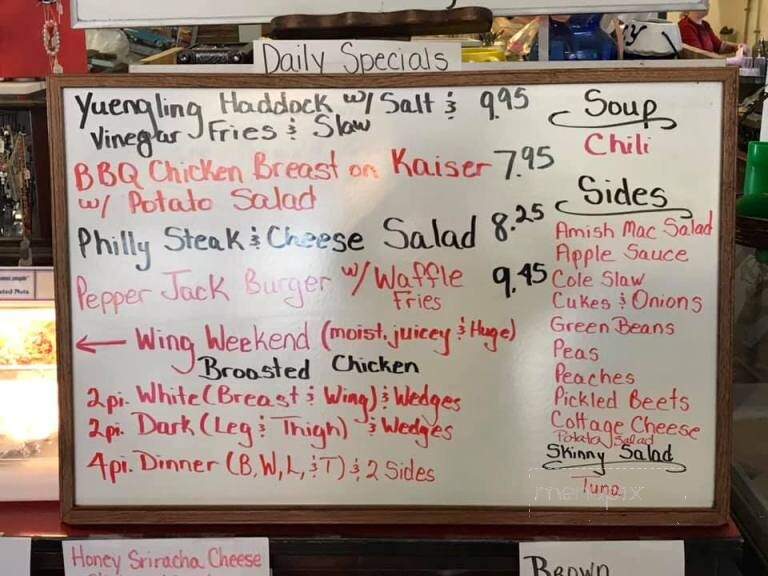 Daily Specials
Yuengling Haddock w/ Salt & 9.95
Vinegar Fries & Slaw
BBQ Chicken Breast on Kaiser 7.95
w/ Potato Salad
Philly Steak & Cheese Salad 8.25
Pepper Jack Burger w/ Waffle 9.45
Fries
← Wing Weekend (moist, juicey & Huge)
Broasted Chicken
2pi. White (Breast & Wing) & Wedges
2pi. Dark (Leg & Thigh) & Wedges
4pi. Dinner (B, W, L, & T) & 2 Sides
Soup
Chili
Sides
Amish Mac Salad
Apple Sauce
Cole Slaw
Cukes & Onions
Green Beans
Peas
Peaches
Pickled Beets
Cottage Cheese
Potato Salad
Skinny Salad
Tuna
menupix
Honey Sriracha Cheese
Brown